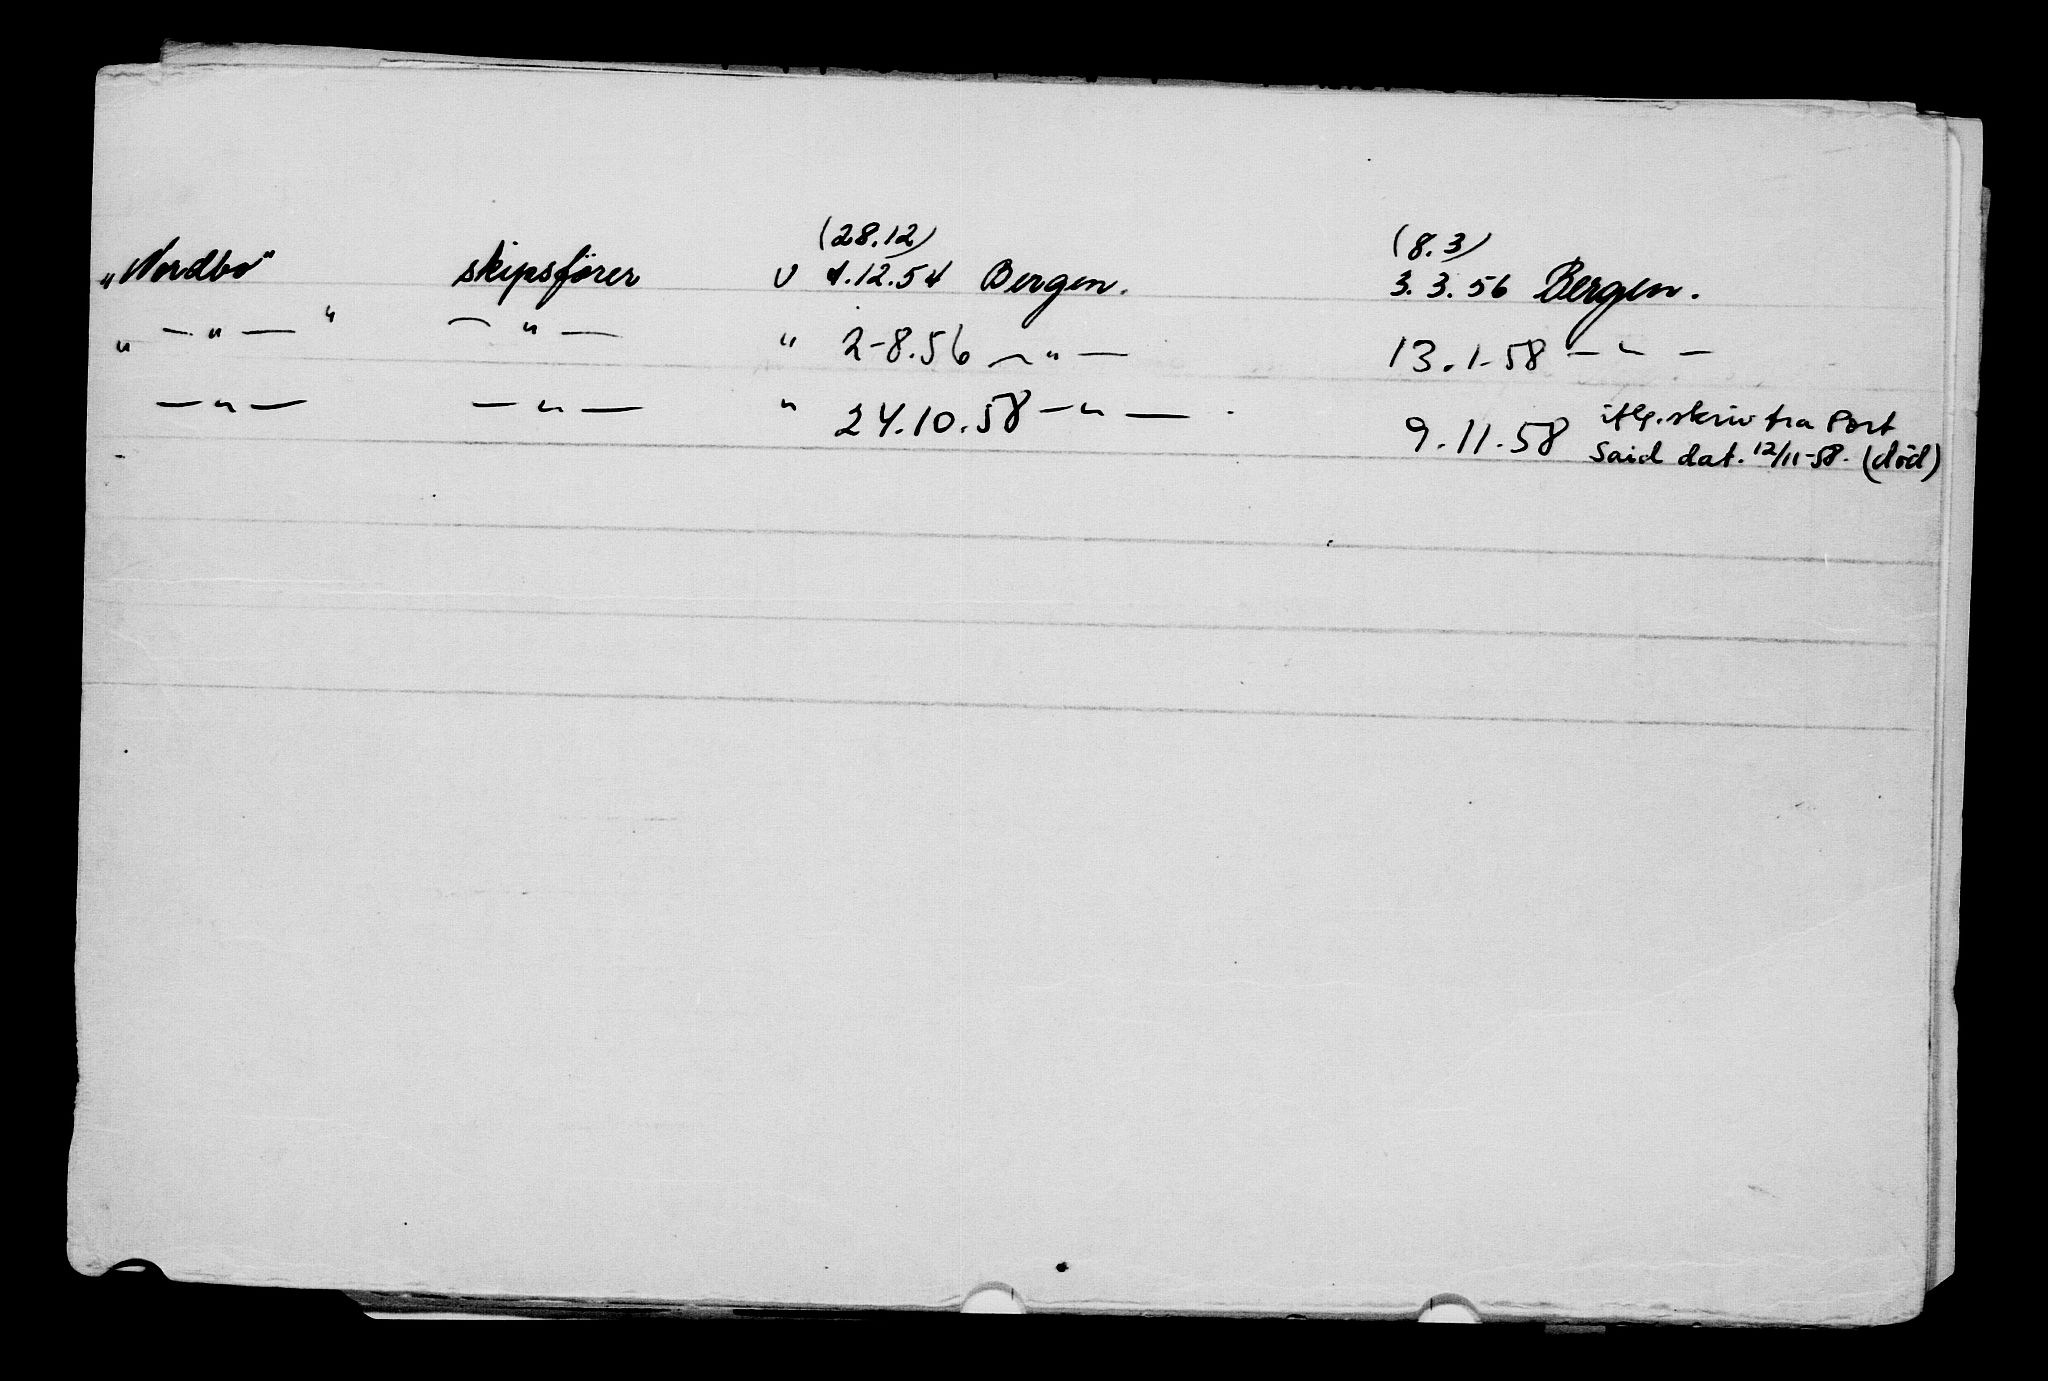 (28.12) (8.3)
„Nordbo" skipsförer U 4.12.54 Bergen. 3.3.56 Bergen.
„ — " — " — " — " 2-8.56 — " — 13.1-58 — " —
— " — — " — " 24.10.58 — " — . 9.11-58 iflg. skriv fra Port
Said dat. 12/11-58. (död)